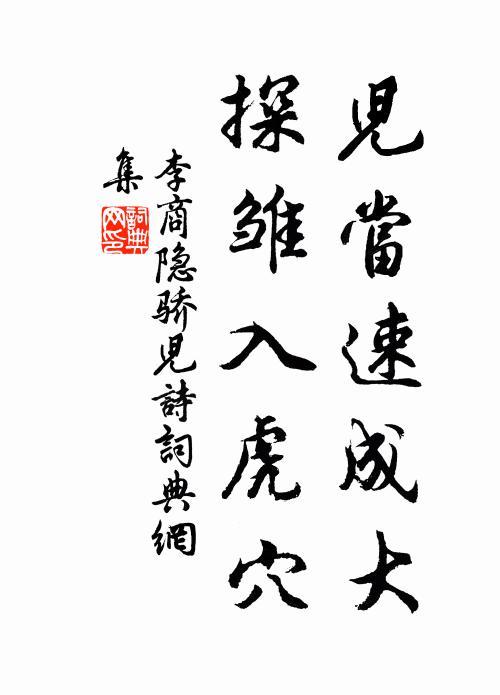 兒當速成大
探雏入虎穴
李商隐骄兒詩詞典網
集
詞典
网印